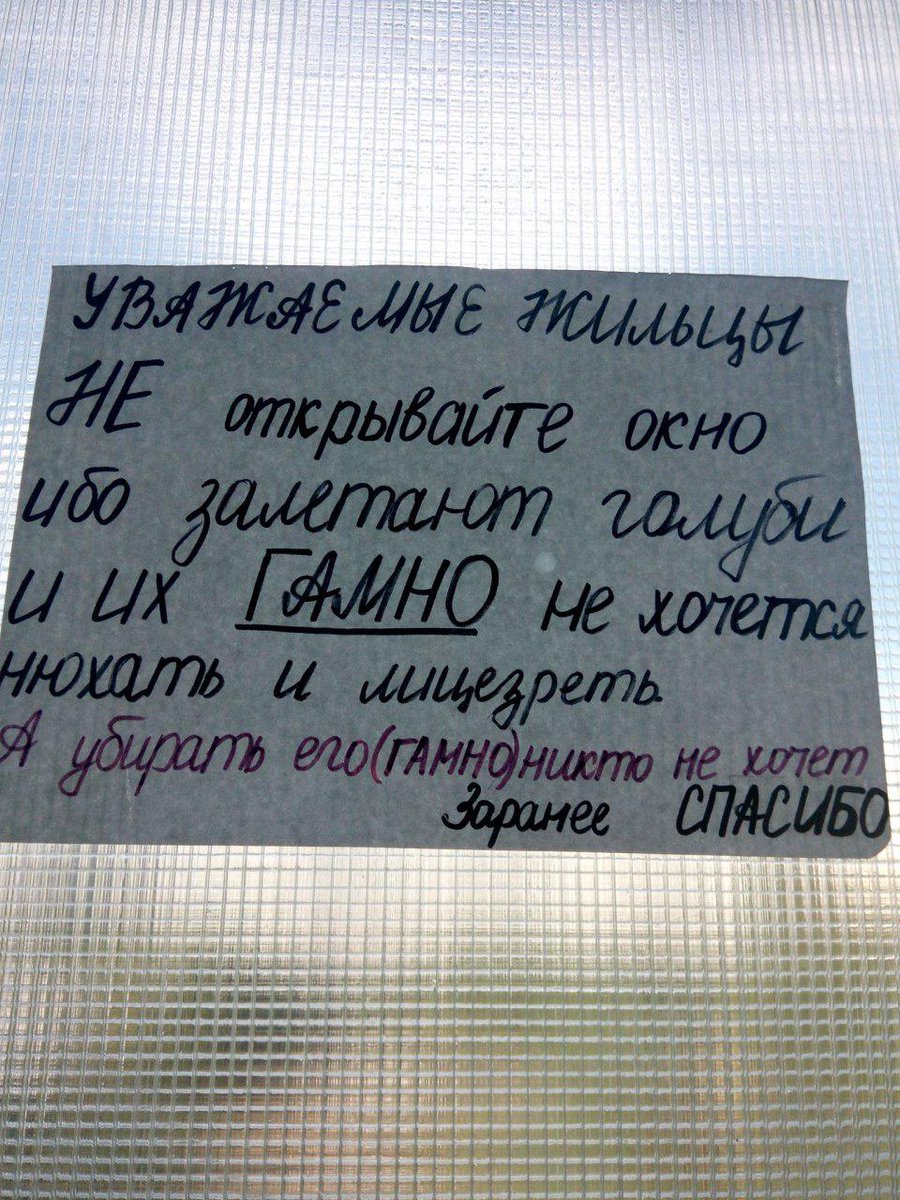 УВАЖАЕМЫЕ ЖИЛЬЦЫ
НЕ открывайте окно
ибо залетают голуби
и их ГАМНО не хочется
нюхать и лицезреть.
А убирать его(ГАМНО)никто не хочет
Заранее СПАСИБО